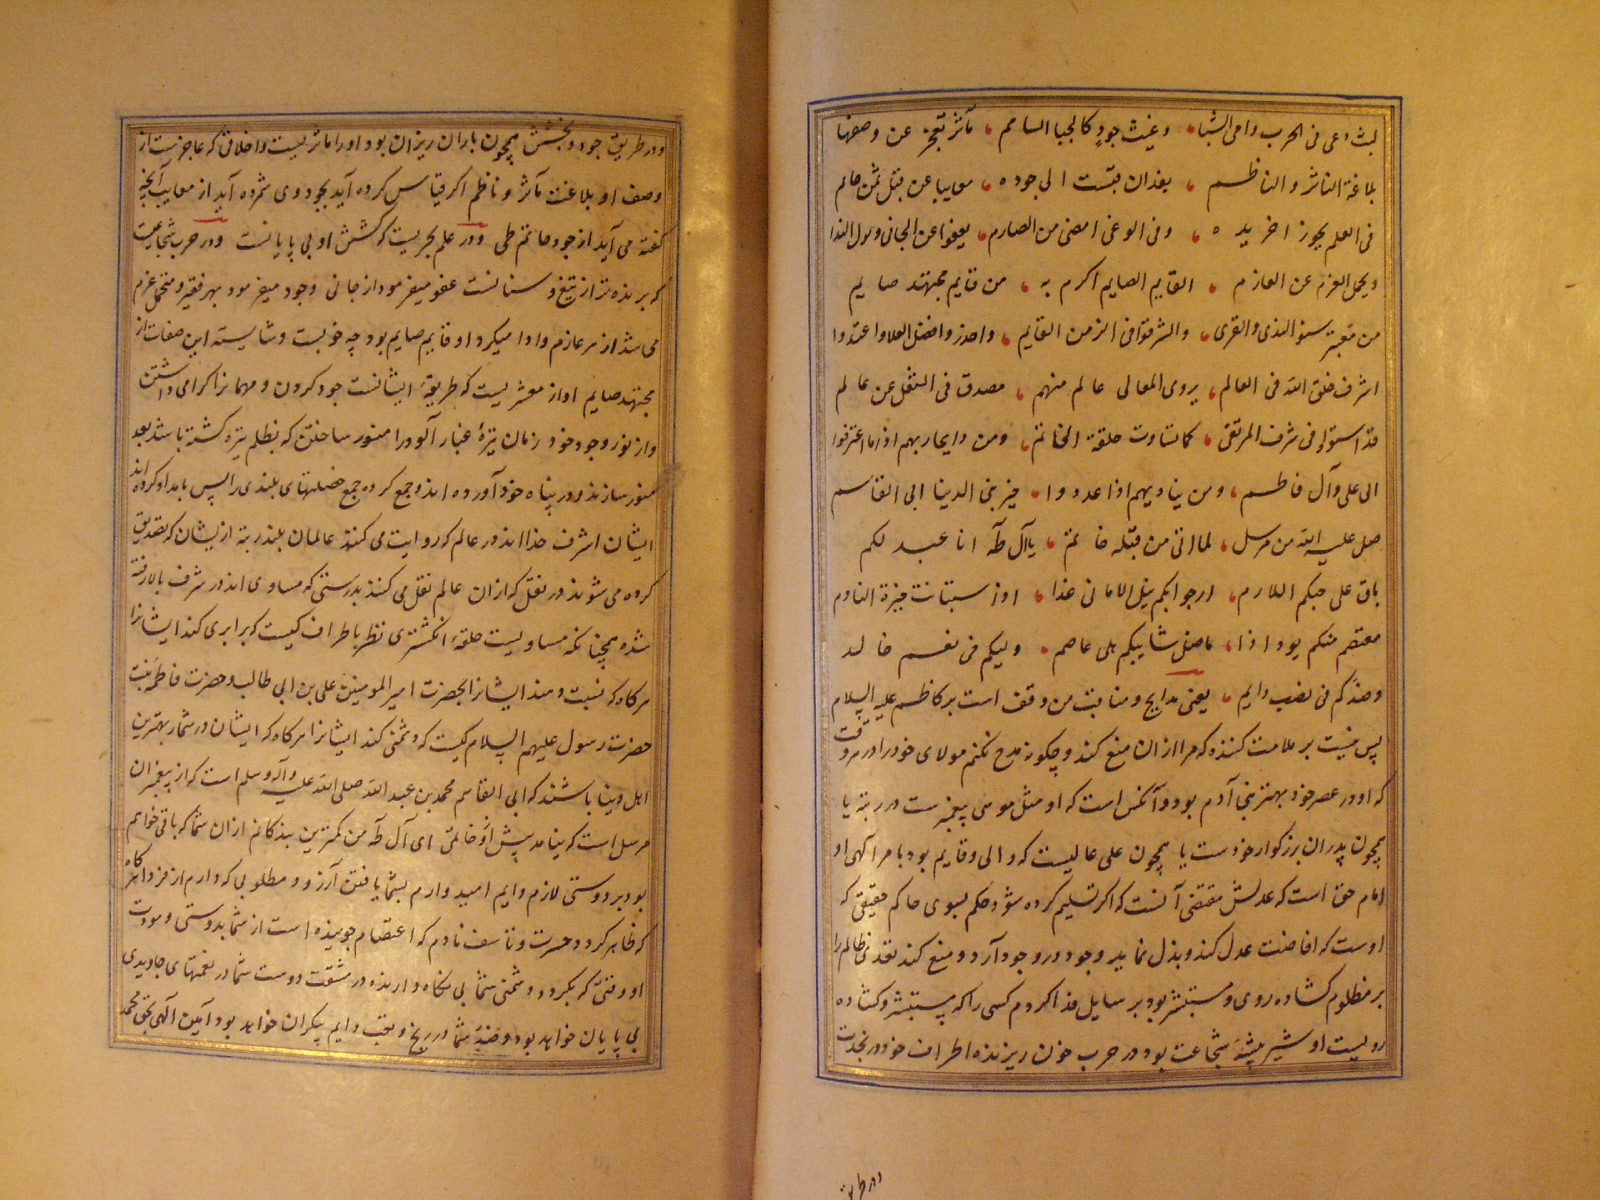 لیث وغی فی الحرب دامی الشبا وغیث جود کالحیا الساجم مآثر تعجز عن وصفها
بلاغة الناثر والناظم یعد ان قیست الی جوده معایبا عن قبل من حاتم
فی العلم بحر زاخر یده وفی الوغی امضی من الصارم یعفو عن الجانی ویولی الندا
ویحمل الغرم عن الغارم القایم الصایم اکرم به من قایم مجتهد صایم
من معشر سنوا الندی والقری واشرقوا فی الزمن القایم واحرزوا خصل العلا واغتدوا
اشرف خلق الله فی العالم یروی المعالی عالم منهم مصدق فی النقل عن عالم
قد استووا فی شرف المرتقی کما تساوت حلقة الخاتم ومن یجاریهم اذا ما اعتزوا
الی علی وآل فاطم ومن یناویهم اذا عددوا خیر بنی الدنیا ابی القاسم
صلی علیه الله من مرسل لما اتی من قبله خاتم یا آل طه انا عبد لکم
باق علی حبکم اللازم ارجو بکم نیل الامانی غدا اذا استبانت حیرة النادم
معتصم منکم بود اذا ما ضل شانیکم بلی عاصم ولیکم فی نعم خالد
وضدکم فی نصب دایم یعنی مدایح و مناقبت من وقف است بر کاظم علیه السلام
پس نیست بر ملامت کننده که مرا از ان منع کند و چگونه مدح نکنم مولای خود را در وقت
که او در عصر خود بهتر بنی آدم بود و آنکس است که او مثل موسی پیغمبرست در رتبه یا
همچون پدران بزرگوار خودست یا همچون علی عالیست که والی و قایم بود بامر الهی او
امام حق است که عدلش مقتضی آنست که اگر تسلیم کرده شود حکم بسوی حاکم حقیقی که
اوست که افاضت عدل کند و بذل نماید و جود در وجود آرد و منع کند تعدی ظالم را
بر مظلوم کشاده روی و مستبشر بود بر سایل فدا کردم کسی را که مستبشر و کشاده
رویست او شیر بیشه شجاعت بود در حرب خون ریزنده اطراف خود در نجدت
در طریق
و در طریق جود و بخشش همچون باران ریزان بود او را مآثریست و اخلاق که عاجزست از
وصف او بلاغت مآثر و ناظم اکر قیاس کرده آید بجود وی شمرده آید از معایب آنچه
گفته می آید از جود حاتم طی و در علم بحریست که کشش او بی پایانست و در حرب شجاعت
که برنده تر از تیغ و سنانست عفو میفرمود از جانی وجود میفرمود بهر فقیر و متحمل غرم
می شد از سر عازم و ادا میکرد او قایم صایم بود چه خوبست و شایسته این صفات از
مجتهد صایم او از معشریست که طریقۀ ایشانست جود کردن و مهمانرا کرامی داشتن
و از نور وجود خود زمان تیرۀ غبار آلود را منور ساختن که بظلم تیره کشته باشد بعد
منور سازند و در پناه خود آورده اند و جمع کرده جمع خصلتهای بلندی را پس بامداد کرده اند
ایشان اشرف خدا اند در عالم که روایت می کنند عالمان بلند رتبه از یشان که تصدیق
کرده می شوند در نقل که از ان عالم نقل می کنند بدرستی که مساوی اند در شرف بالا رفته
شده همچنانکه مساویست حلقۀ انکشتری نظر باطراف کیست که برابری کند ایشانرا
هرکاه که نسبت دهند ایشانرا بحضرت امیر المومنین علی بن ابی طالب و حضرت فاطمه بنت
حضرت رسول علیهم السلام کیست که دشمنی کند ایشانرا هرکاه که ایشان در شمار بهترین
اهل دنیا باشند که ابی القاسم محمد بن عبد الله صلی الله علیه وآله وسلم است که از پیغمبران
مرسل است که نیامد پیش از و خاتمی ای آل طه من کمترین بندکانم از ان شما که باقی خواهم
بود بر دوستی لازم و دایم امید وارم بشما یافتن آرزو و مطلوبی که دارم از فردا هرکاه
که ظاهر کردد حسرت و تاسف نادم که اعتصام جوینده است از شما بدوستی و مودت
او وقتی که بکردد دشمنی شما بی نکاه دارنده در مشقت دوست شما در نعمتهای جاویدی
بی پایان خواهد بود و ضد شما در رنج و تعب دایم بیکران خواهد بود آمین الهی بحق محمد